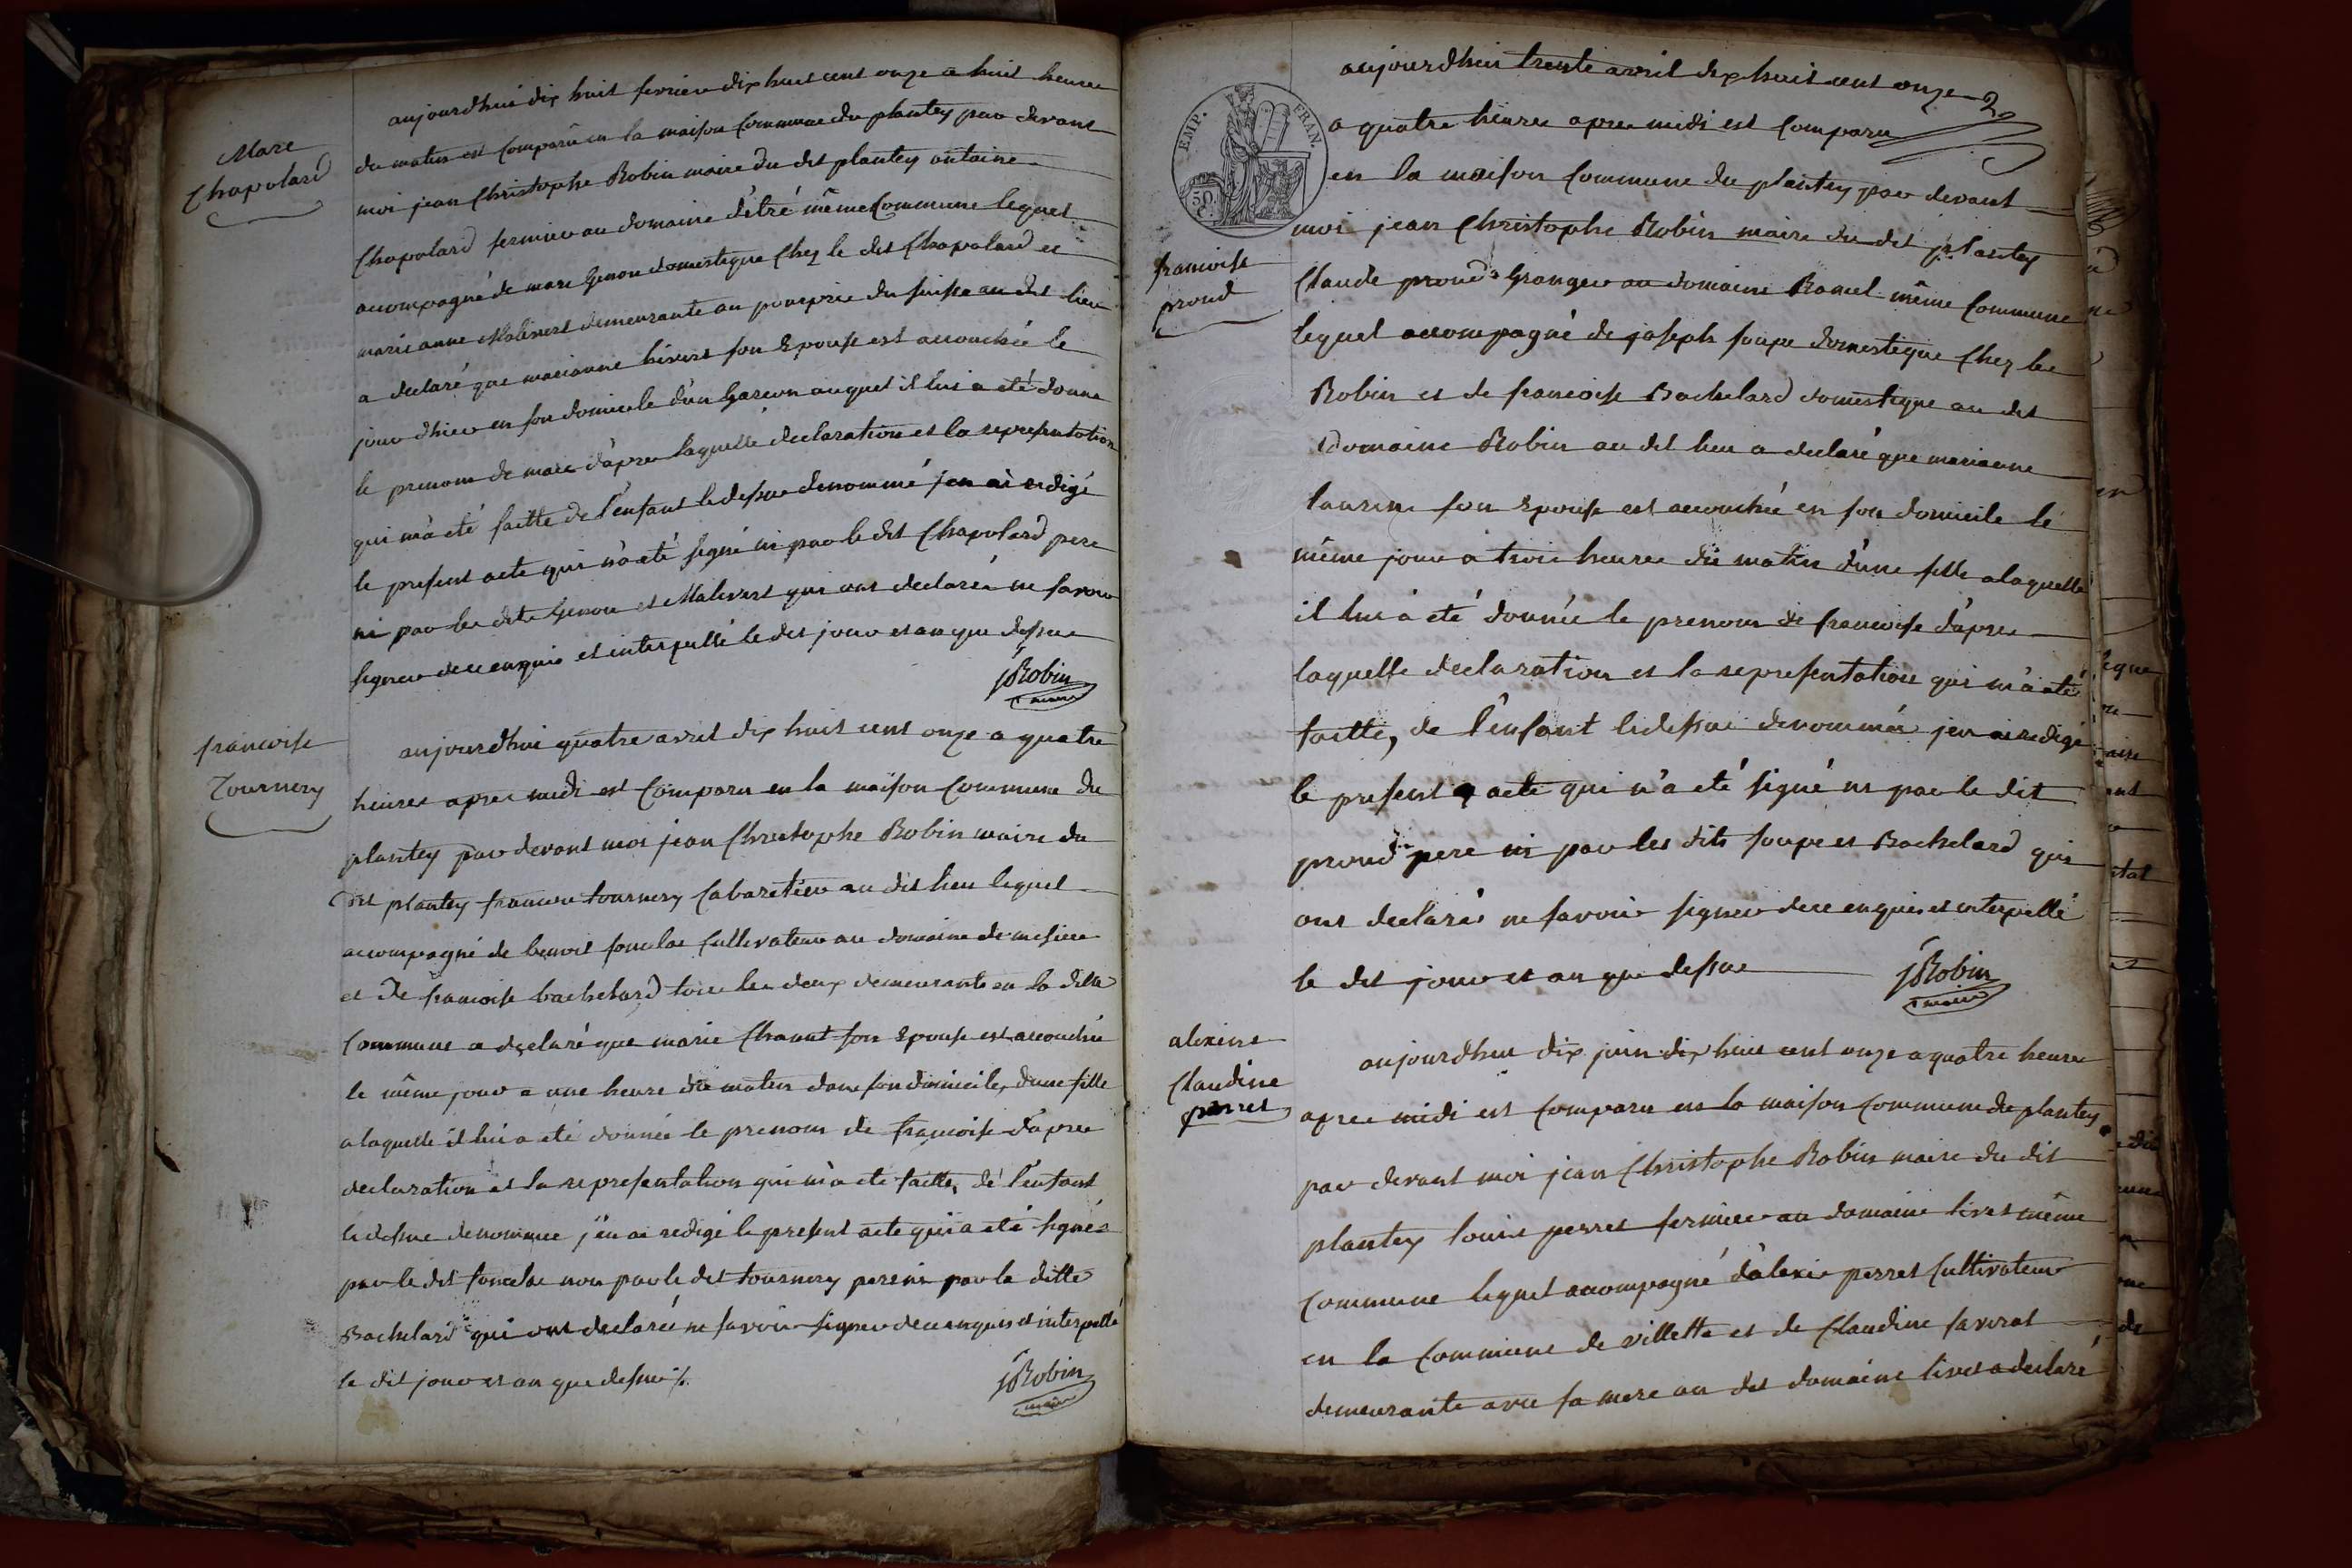 Marc
Chapolard
aujourdhui dix huit fevrier dix huit cent onze a huit heures
du matin est comparu en la maison Commune du plantey par devant
moi jean Christophe Robin maire du dit plantey antoine
Chapolard fermier au domaine d'étré même Commune lequel
accompagné de marc Genou domestique chez le dit Chapolard et
marie anne Malivert demeurante au pourprie du suisse au dit lieu
a declaré que marianne hivert son Epouse est accouchée le
jour dhier en son domicile d'un Garcon auquel il lui a été donné
le prenom de marc d'apres laquelle declaration et la representation
qui m'a été faitte de l'enfant ledessus denommé jen ai redigé
le present acte qui n'a été signé ni par le dit Chapolard pere
ni par les dits Genou et Malivert qui ont declarés ne savoir
signer de ce enquis et interpellé le dit jour et an que dessus
JRobin
maire
francoise
Tournery
aujourdhui quatre avril dix huit cent onze a quatre
heures apres midi est Comparu en la maison Commune du
plantey par devant moi jean Christophe Robin maire du
dit plantey francois tournery Cabaretier au dit lieu lequel
accompagné de benoit Cultivateur au domaine de
et de francoise bachelard tous les deux demeurants en la ditte
Commune a declaré que marie Chanut son Epouse est accouchée
le même jour a une heure du matin dans son domicile, dune fille
a laquelle il lui a été donnée le prenom de francoise d'apres
declaration et la representation qui m'a été faitte, de l'enfant
ledessus denommee j'en ai redigé le present acte qui a été signés
par le dit non par le dit tournery pere ni par la ditte
Bachelard qui ont declarés ne savoir signer de ce enquis et interpellé
le dit jour et an que dessus
JRobin
maire
2
EMP. FRAN.
50 C.
francoise
proud
aujourdhui trente avril dix huit cent onze
a quatre heures apres midi est Comparu
en la maison Commune du plantey par devant
moi jean Christophe Robin maire du dit plantey
Claude proud Granger au domaine même Commune
lequel accompagné de joseph soupe domestique Chez les
Robin et de francoise Bachelard domestique au dit
Domaine Robin au dit lieu a declaré que marianne
son Epouse est accouchée en son domicile le
même jour a trois heures du matin d'une fille a laquelle
il lui a été donnée le prenom de francoise d'apres
laquelle declaration et la representation qui m'a été
faitte, de l'enfant ledessus denommée jen ai redigé
le present acte qui n'a été signé ni par le dit
proud pere ni par les dits soupe et Bachelard qui
ont declarés ne savoir signer de ce enquis et interpellé
le dit jour et an que dessus
JRobin
maire
alexine
Claudine
perret
aujourdhui dix juin dix huit cent onze a quatre heures
apres midi est Comparu en la maison Commune du plantey
par devant moi jean Christophe Robin maire du dit
plantey louis perret fermier au domaine livet même
Commune lequel accompagné d'alexis perret Cultivateur
en la Commune de villette et de Claudine favrat
demeurante avec sa mere au dit domaine livet a declaré